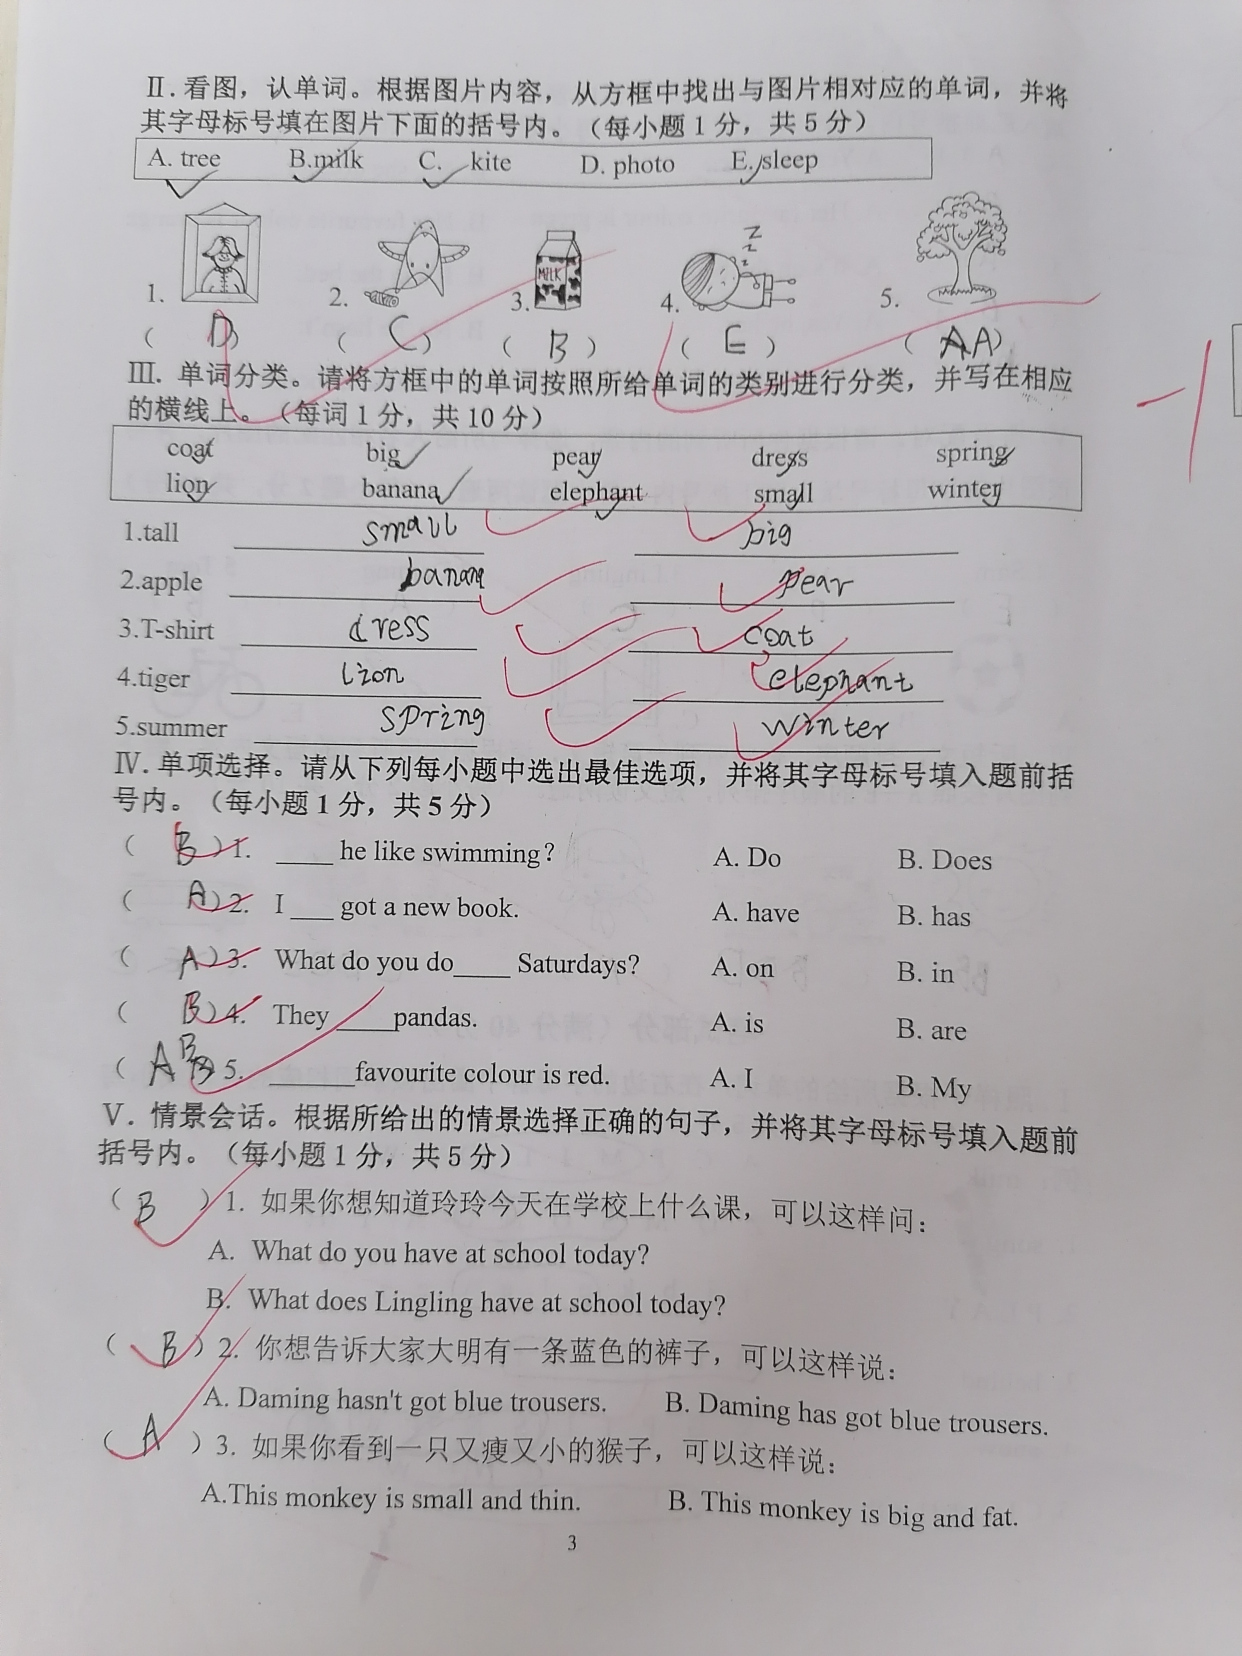 Ⅱ.看图，认单词。根据图片内容，从方框中找出与图片相对应的单词，并将
其字母标号填在图片下面的括号内。（每小题1分，共5分）
A. tree B.milk C. kite D. photo E. sleep
MILK
z z z
1. 2. 3. 4. 5.
( D ) ( C ) ( B ) ( E ) ( AA )
Ⅲ. 单词分类。请将方框中的单词按照所给单词的类别进行分类，并写在相应
的横线上。（每词1分，共10分）
-1
coat big pear dress spring
lion banana elephant small winter
1.tall small big
2.apple banana pear
3.T-shirt dress coat
4.tiger lion elephant
5.summer spring winter
Ⅳ.单项选择。请从下列每小题中选出最佳选项，并将其字母标号填入题前括
号内。（每小题1分，共5分）
( B )1. ____ he like swimming? A. Do B. Does
( A )2. I ___ got a new book. A. have B. has
( A )3. What do you do____ Saturdays? A. on B. in
( B )4. They ____pandas. A. is B. are
( A B )5. ______favourite colour is red. A. I B. My
Ⅴ. 情景会话。根据所给出的情景选择正确的句子，并将其字母标号填入题前
括号内。（每小题1分，共5分）
( B )1. 如果你想知道玲玲今天在学校上什么课，可以这样问：
A. What do you have at school today?
B. What does Lingling have at school today?
( B )2. 你想告诉大家大明有一条蓝色的裤子，可以这样说：
A. Daming hasn't got blue trousers. B. Daming has got blue trousers.
( A )3. 如果你看到一只又瘦又小的猴子，可以这样说：
A.This monkey is small and thin. B. This monkey is big and fat.
3